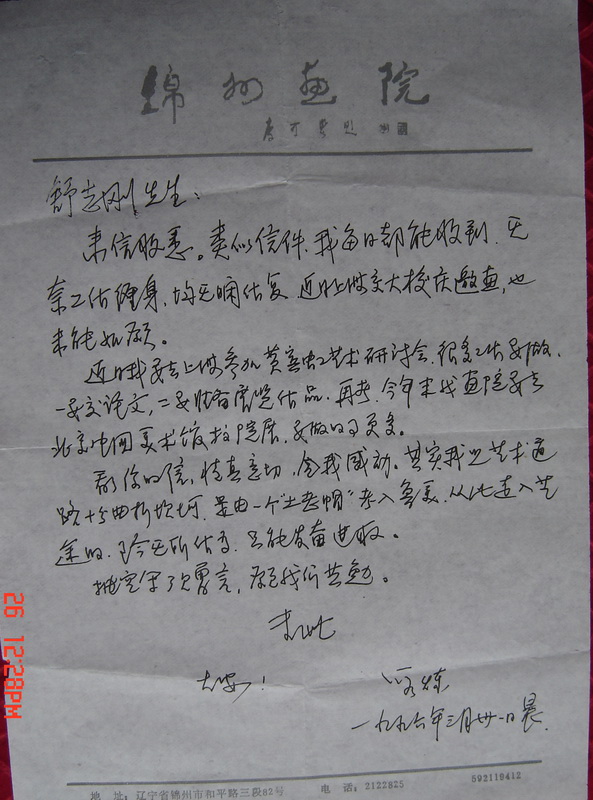 锦州画院
舒志刚先生:
来信收悉。类似信件,我每日都能收到,无
奈工作缠身,均无暇作复。近日上海交大校庆邀画,也
未能如愿。
近日我要去上海参加黄宾虹艺术研讨会,很多工作要做,
一要交论文,二要准备展览作品。再者,今年末我画院要去
北京中国美术馆搞院展,要做的事更多。
看你的信,情真意切,令我感动。其实我之艺术道
路十分曲折坎坷,是由一个"土老帽"考入鲁美,从此走入艺
途的。除无所作为,只能发奋进取。
抛空写了几句,愿我们共勉。
大安!
一九九六年三月廿一日晨.
地 址: 辽宁省锦州市和平路三段82号 电 话: 2122825 592119412
26 12:28PM